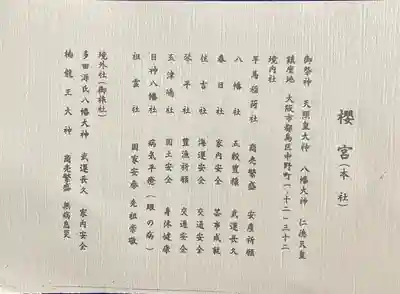 櫻宮(本社)
御祭神 天照皇大神 八幡大神 仁徳天皇
鎮座地 大阪市都島区中野町一-十二-三十二
境内社
早馬稲荷社 商売繁盛 安産祈願
八幡社 正穀豊穣 武運長久
春日社 家内安全 万事成就
住吉社 海運安全 交通安全
金平社 豊漁祈願 交通安全
玉津嶋社 国土安全 身体健康
日神八幡社 病気平癒(眼の病)
祖霊社 国家安泰 先祖崇敬
境外社(御旅社)
多田源氏八幡大神 武運長久 家内安全
楠龍王大神 商売繁盛 無病息災